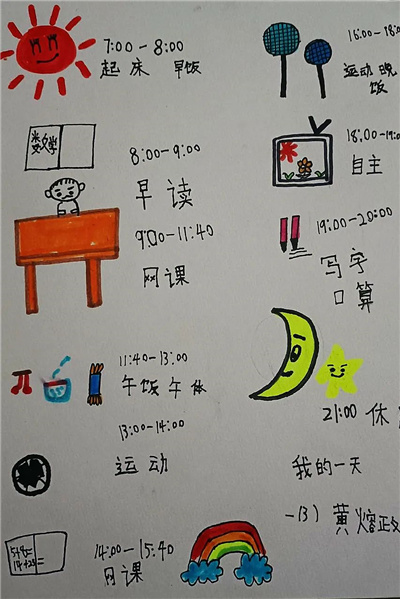 7:00-8:00
起床 早饭
数学
8:00-9:00
早读
9:00-11:40
网课
11:40-13:00
午饭午休
13:00-14:00
运动
14:00-15:40
网课
16:00-18:0
运动晚
饭
18:00-19:0
自主
19:00-20:00
写字
口算
21:00 休
我的一天